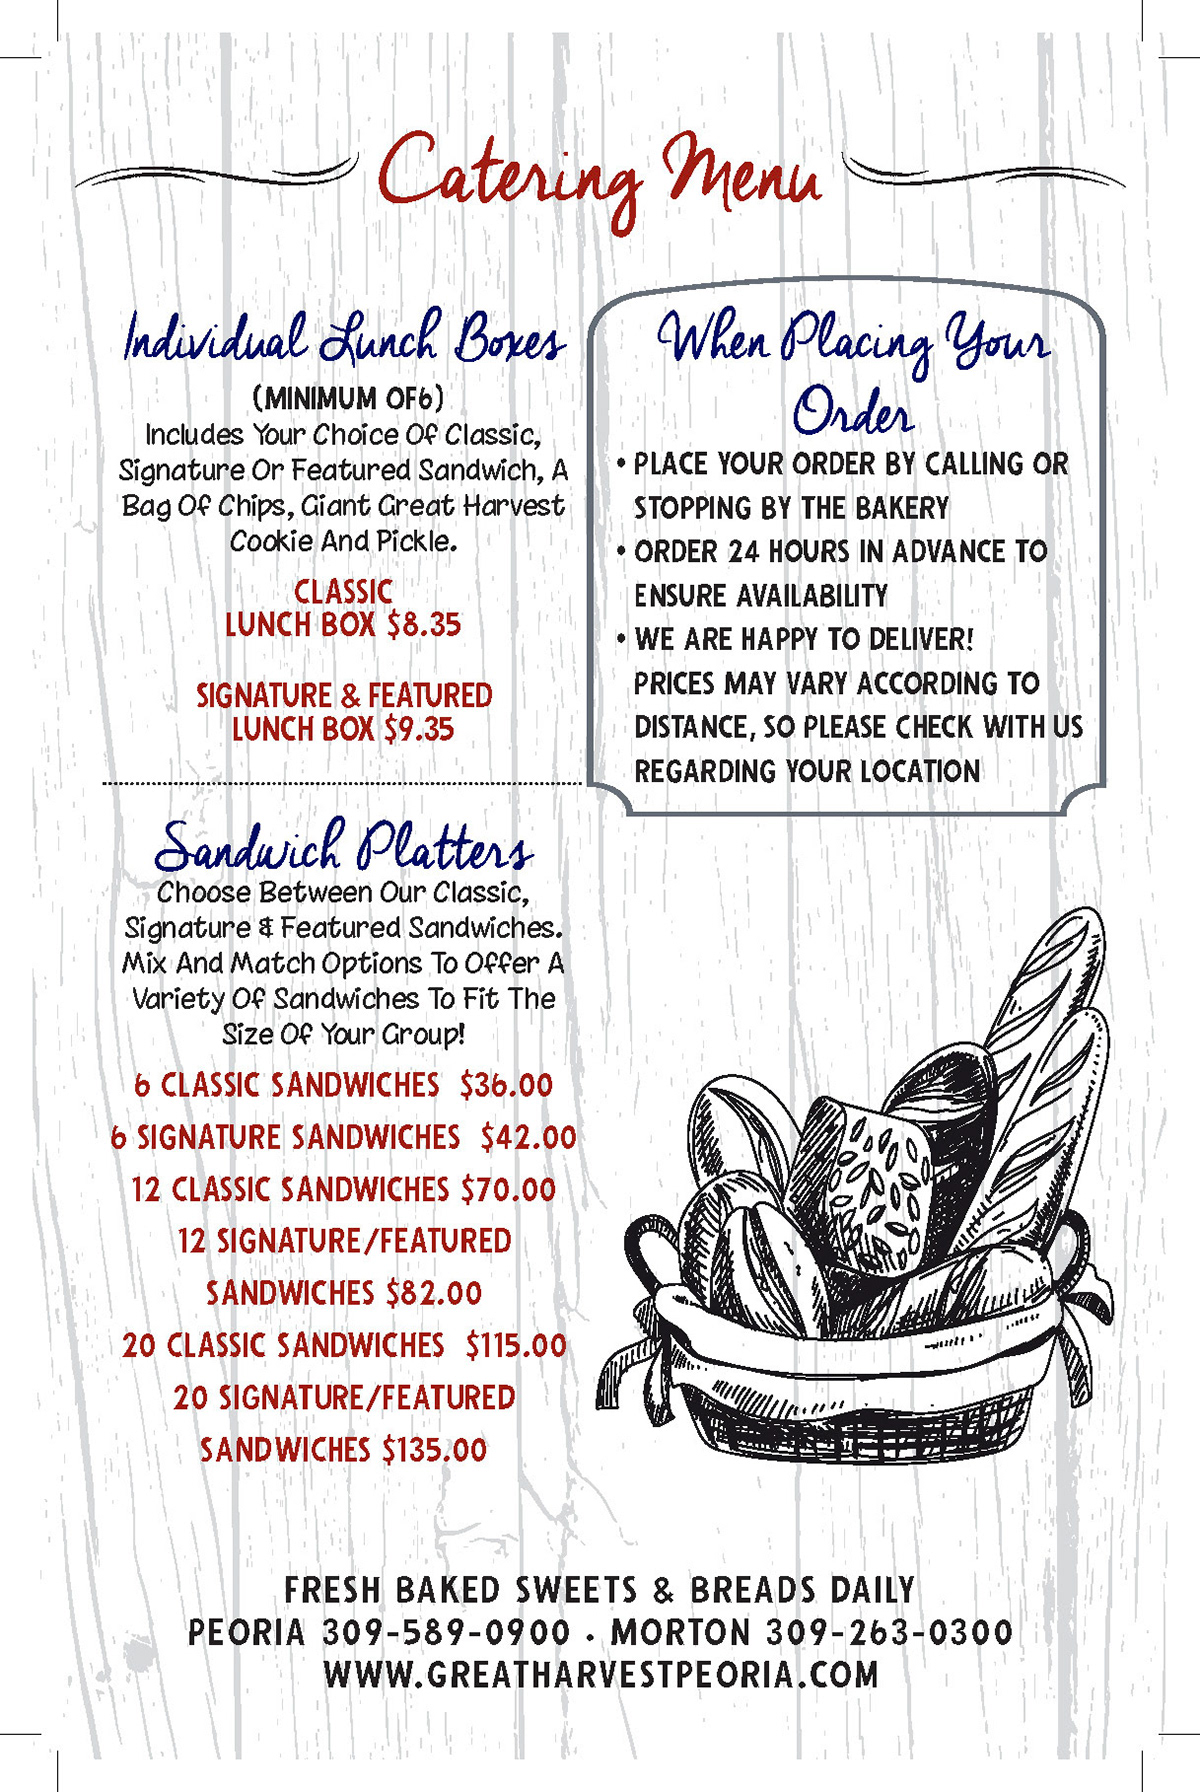 Catering Menu
Individual Lunch Boxes
(MINIMUM OF6)
Includes Your Choice Of Classic,
Signature Or Featured Sandwich, A
Bag Of Chips, Giant Great Harvest
Cookie And Pickle.
CLASSIC
LUNCH BOX $8.35
SIGNATURE & FEATURED
LUNCH BOX $9.35
When Placing Your
Order
• PLACE YOUR ORDER BY CALLING OR
STOPPING BY THE BAKERY
• ORDER 24 HOURS IN ADVANCE TO
ENSURE AVAILABILITY
• WE ARE HAPPY TO DELIVER!
PRICES MAY VARY ACCORDING TO
DISTANCE, SO PLEASE CHECK WITH US
REGARDING YOUR LOCATION
Sandwich Platters
Choose Between Our Classic,
Signature & Featured Sandwiches.
Mix And Match Options To Offer A
Variety Of Sandwiches To Fit The
Size Of Your Group!
6 CLASSIC SANDWICHES $36.00
6 SIGNATURE SANDWICHES $42.00
12 CLASSIC SANDWICHES $70.00
12 SIGNATURE/FEATURED
SANDWICHES $82.00
20 CLASSIC SANDWICHES $115.00
20 SIGNATURE/FEATURED
SANDWICHES $135.00
FRESH BAKED SWEETS & BREADS DAILY
PEORIA 309-589-0900 • MORTON 309-263-0300
WWW.GREATHARVESTPEORIA.COM